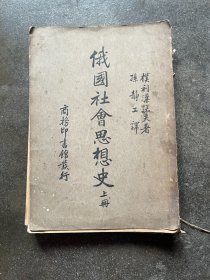 樸利漢諾夫著
孫靜工譯
俄國社會思想史 上冊
商務印書館發行